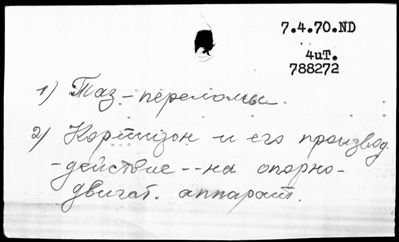 7.4.70.ND
4чТ.
788272
1) Таз - переломы.
2) Кортизон и его производ.
- действие -- на опорно-
двигат. аппарат.